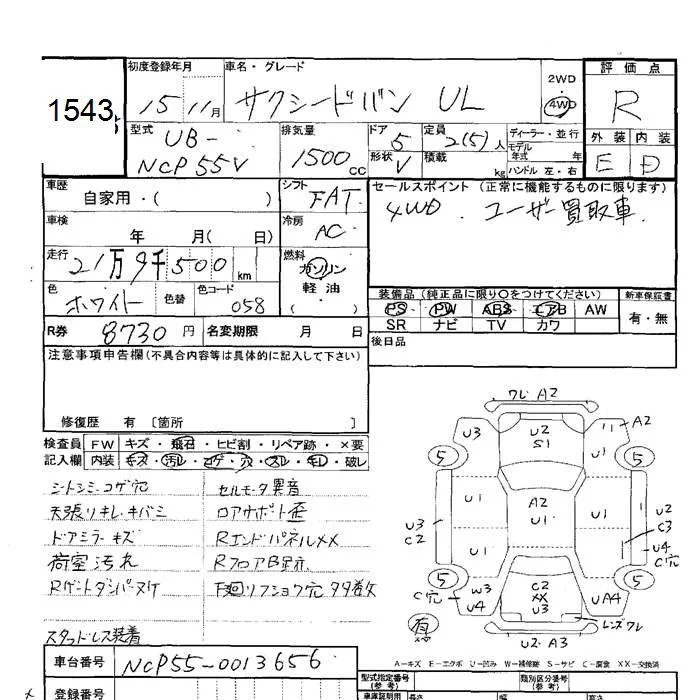 1543
初度登録年月
車名・グレード
2WD
4WD
評価点
15 11月
サクシードバン UL
R
型式
排気量
ドア
定員
ディーラー・並行
モデル
年式 年
外装 内装
UB-
NCP55V
1500 cc
5
2(5)人
形状 V
積載 kg
ハンドル 左・右
E D
車歴
自家用・( )
シフト
FAT
セールスポイント (正常に機能するものに限ります)
4WD. ユーザー買取車.
車検
年 月( 日)
冷房
AC
走行
21万9千500km
燃料
ガソリン
軽油
( )
色
ホワイト
色替
色コード
058
装備品 (純正品に限り○をつけてください)
新車保証書
PS PW ABS エアB AW
有・無
SR ナビ TV カワ
R券 8730円
名変期限 月 日
後日品
注意事項申告欄(不具合内容等は具体的に記入して下さい)
修復歴 有 [箇所 ]
検査員
記入欄
FW キズ・飛石・ヒビ割・リペア跡・×要
内装 キズ・汚レ・コゲ・穴・スレ・キレ・破レ
シートシミ・コゲ穴
セルモータ異音
天張リキレ・キバミ
ロアサポート歪
ドアミラーキズ
RエンドパネルXX
荷室汚れ
Rゲートダンパーヌケ
スタッドレス装着
ワレ A2
U3
U2
S1
A2
U1
5
5
U1
A2
U1
U1
U3
C2
U2
C3
U4
C穴
5
5
W3
U4
C穴
C2
XX
U3
UA4
レンズワレ
有
U2・A3
A-キズ E-エクボ U-凹み W-補修跡 S-サビ C-腐食 XX-交換済
車台番号
NCP55-0013656
型式指定番号
(参考)
類別区分番号
(参考)
登録番号
長さ
幅
高さ